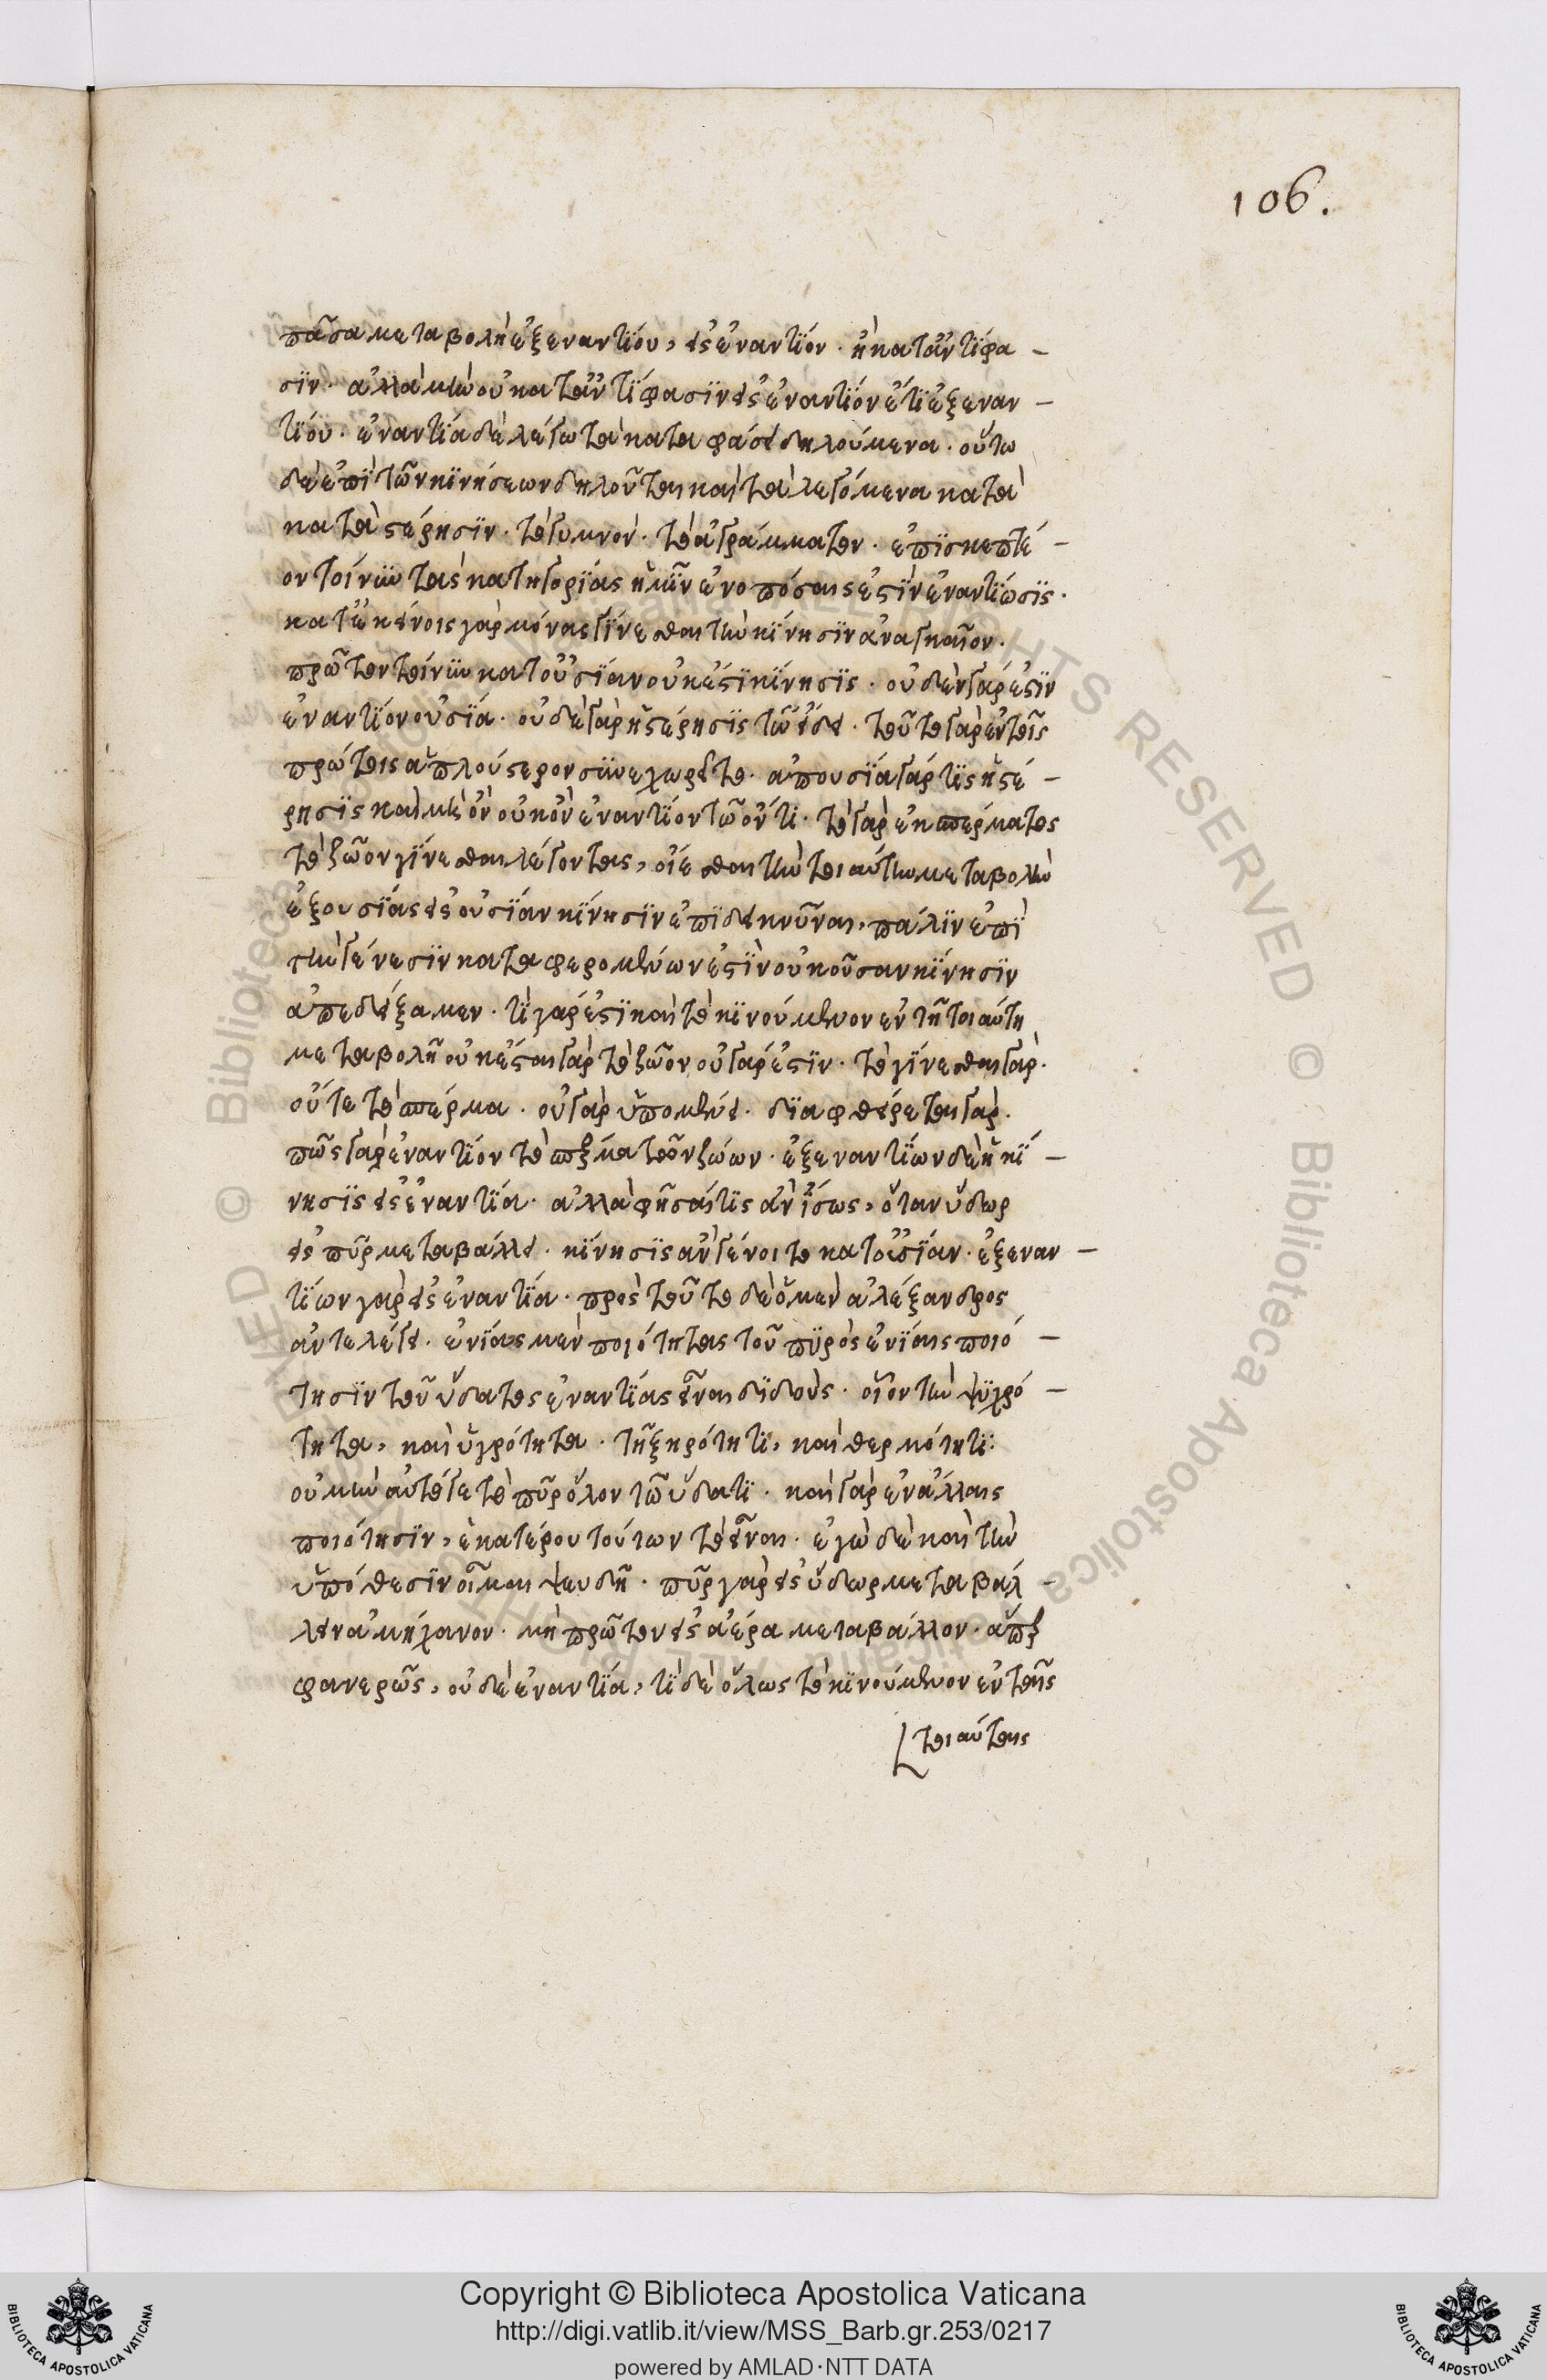 106.
πᾶσα μεταβολὴ ἐξ ἐναντίου, εἰς ἐναντίον. ἢ κατ' ἀντίφα-
σϊν. ἀλλὰ μὴν οὐ κατ' ἀντίφασϊν εἰς ἐναντίον ἔτι ἐξ ἐναν-
τίου. ἐναντία δὲ λέγω τὰ καταφάσει δηλούμενα. οὕτω
δὲ ἐπὶ τῶν κϊνήσεων δηλοῦται καὶ τὰ λεγόμενα κατὰ
κατὰ στέρησϊν. τὸ γυμνόν. τὸ ἀγράμματον. ἐπϊσκεπτέ-
ον τοίνυν τὰς κατηγορίας ἡμῖν ἐν ὁπόσαις ἐστὶν ἐναντίωσϊς.
κατ' ἐκείνοις γὰρ μόνας γίνεσθαι τὴν κίνησϊν ἀναγκαῖον.
πρῶτον τοίνυν κατ' οὐσίαν οὐκ ἔστι κίνησϊς. οὐδὲν γάρ ἐστϊν
ἐναντίον οὐσία. οὐδὲ γὰρ ἡ στέρησϊς τῷ εἴδει. τοῦτο γὰρ ἐν τοῖς
πρώτοις ἁπλούστερον συνεχωρεῖτο. ἀπουσία γάρ τϊς ἡ στέ-
ρησϊς καὶ μὴ ὂν οὐκ ὂν ἐναντίον τῷ ὄντι. τὸ γὰρ ἐκ σπέρματος
τὸ ζῶον γίνεσθαι λέγοντας, οἴεσθαι τὴν τοιαύτην μεταβολὴν
ἐξ οὐσίας εἰς οὐσίαν κίνησϊν ἐπϊδεικνῦναι, πάλϊν ἐπὶ
τὴν γένεσϊν καταφερομένων ἐστὶν οὐκ οὖσαν κίνησϊν
ἀπεδείξαμεν. τί γάρ ἐστι καὶ τὸ κϊνούμενον ἐν τῇ τοιαύτη
μεταβολῇ οὐκ ἔσται γὰρ τὸ ζῶον οὐ γάρ ἐστιν. τὸ γίνεσθαι γάρ.
οὔτε τὸ σπέρμα. οὐ γὰρ ὑπομένει. δϊαφθείρεται γάρ.
πῶς γὰρ ἐναντίον τὸ σπέρμα τῶν ζώων. ἐξ ἐναντίων δὲ ἡ κί-
νησϊς εἰς ἐναντία. ἀλλὰ φήσαι τϊς ἂν ἴσως, ὅταν ὕδωρ
εἰς πῦρ μεταβάλλει. κίνησϊς ἂν γένοιτο κατ' οὐσίαν. ἐξ ἐναν-
τίων γὰρ εἰς ἐναντία. πρὸς τοῦτο δὲ ὁ μὲν ἀλέξανδρος
ἀντελέγει. ἐνίας μὲν ποιότητας τοῦ πϋρὸς ἐνίαις ποιό-
τησϊν τοῦ ὕδατος ἐναντίας εἶναι δϊδοὺς. οἷον τὴν ψϋχρό-
τητα, καὶ ὑγρότητα. τῇ ξηρότητι, καὶ θερμότητι:
οὐ μὴν αὐτό γε τὸ πῦρ ὅλον τῷ ὕδατι. καὶ γὰρ ἐν ἄλλαις
ποιότησϊν, ἑκατέρου τούτων τὸ εἶναι. ἐγὼ δὲ καὶ τὴν
ὑπόθεσϊν οἶμαι ψευδῆ. πῦρ γὰρ εἰς ὕδωρ μεταβάλ-
λειν ἀμήχανον. μὴ πρῶτον εἰς ἀέρα μεταβάλλον. ἅπερ
φανερῶς, οὐδὲ ἐναντία, τί δὲ ὅλως τὸ κϊνούμενον ἐν ταῖς
τοιαύταις
Copyright © Biblioteca Apostolica Vaticana
http://digi.vatlib.it/view/MSS_Barb.gr.253/0217
powered by AMLAD·NTT DATA